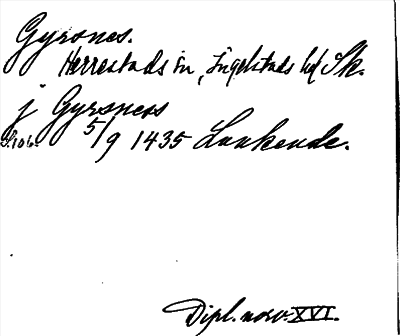 Gyrsnes.
Herrestads sn, Ingelstads hd Sk.
j Gyrsness
S.106. 5/9 1435 Laakende.
Dipl. norv. XVI.